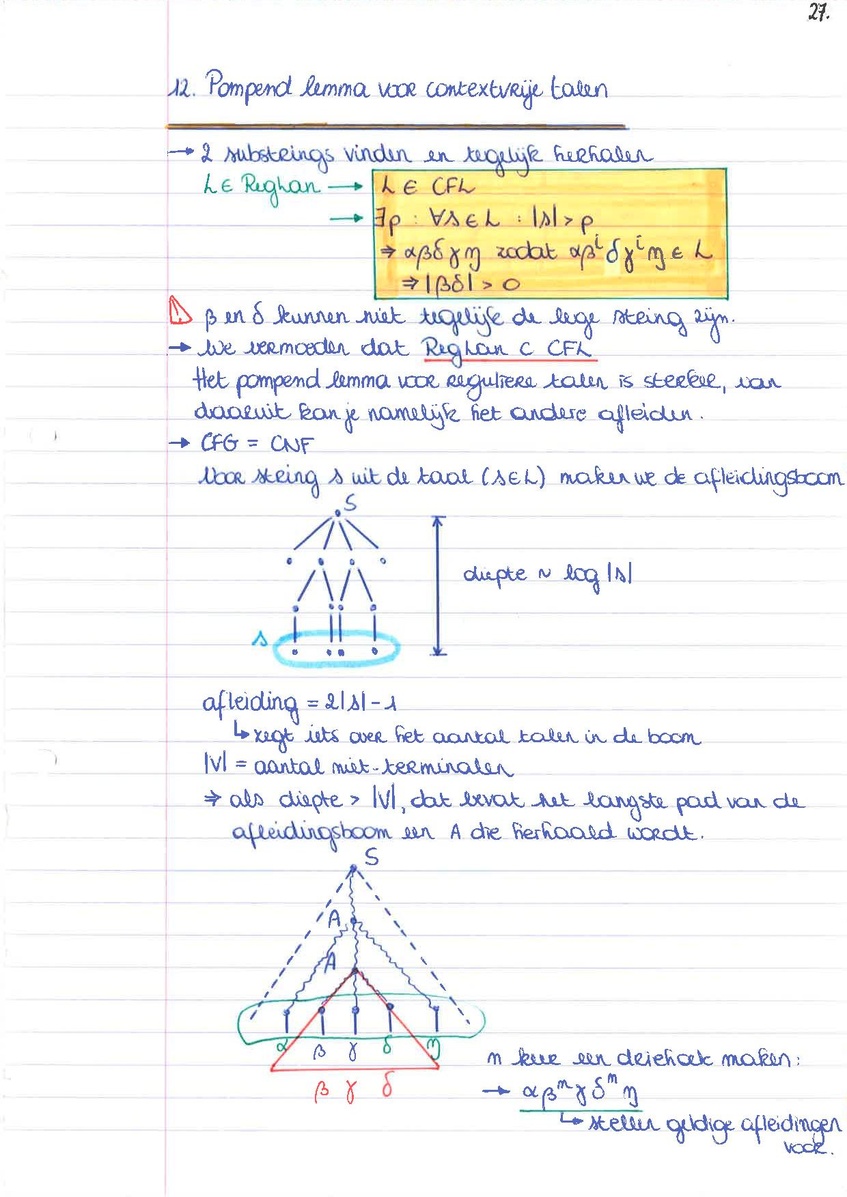 27.
12. Pompend lemma voor contextvrije talen
→ 2 substrings vinden en tegelijk herhalen
L ∈ Reghan → L ∈ CFL
→ ∃p : ∀s ∈ L : |s| > p
⇒ αβδγη zodat αβⁱδγⁱη ∈ L
⇒ |βδ| > 0
⚠ β en δ kunnen niet tegelijk de lege string zijn.
→ We vermoeden dat Reghan ⊂ CFL
Het pompend lemma voor reguliere talen is sterker, van
daaruit kan je namelijk het andere afleiden.
→ CFG = CNF
Voor string s uit de taal (s∈L) maken we de afleidingsboom
S
diepte ~ log |s|
s
afleiding = 2|s| - 1
↳ zegt iets over het aantal talen in de boom
|V| = aantal niet-terminalen
⇒ als diepte > |V|, dat bevat het langste pad van de
afleidingsboom een A die herhaald wordt.
S
A
A
α β γ δ η
β γ δ
n keer een driehoek maken:
→ αβⁿγδⁿη
↳ stellen geldige afleidingen
voor.